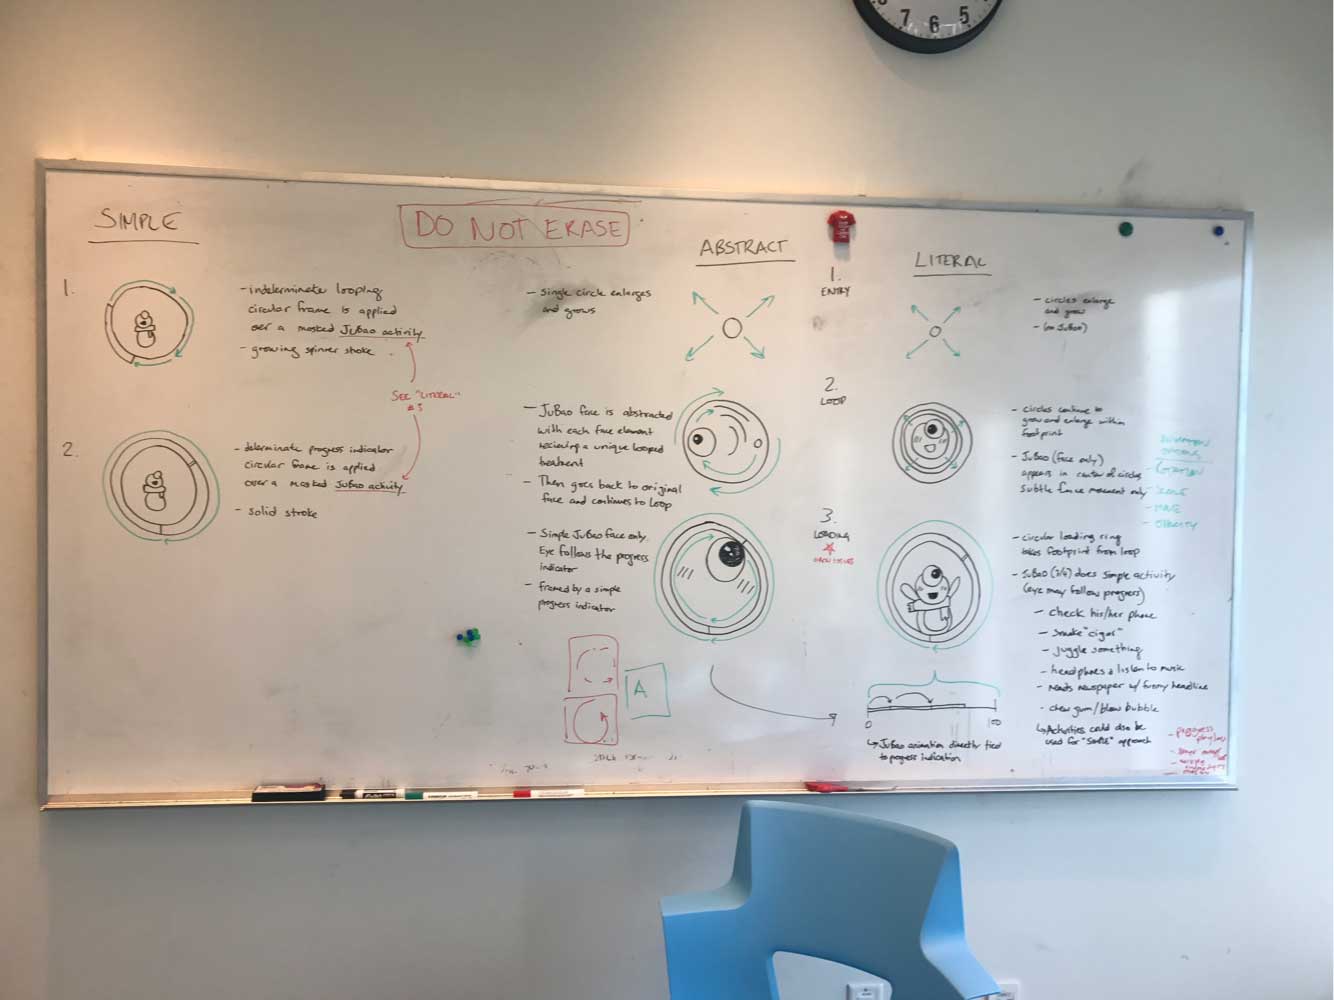 7 6 5
SIMPLE
DO NOT ERASE
1.
- indeterminate looping
circular frame is applied
over a masked JuBao activity
- growing spinner stroke
SEE "LITERAL"
#3
2.
- determinate progress indicator
circular frame is applied
over a masked JuBao activity
- solid stroke
ABSTRACT
- single circle enlarges
and grows
- JuBao face is abstracted
with each face element
recieving a unique looped
treatment
- Then goes back to original
face and continues to loop
- Simple JuBao face only.
Eye follows the progress
indicator
- framed by a simple
progress indicator
A
1.
ENTRY
2.
LOOP
3.
LOADING
LITERAL
- circles enlarge
and grow
- (no JuBao)
- circles continue to
grow and enlarge within
footprint
- JuBao (face only)
appears in center of circles,
subtle face movement only
- circular loading ring
takes footprint from loop
- JuBao (3/4) does simple activity
(eye may follow progress)
- check his/her phone
- smoke "cigar"
- juggle something
- headphones & listen to music
- reads newspaper w/ funny headline
- chew gum/blow bubble
↳ Activities could also be
used for "SIMPLE" approach
0 100
↳ JuBao animation directly tied
to progress indication
- ROTATION
- SCALE
- MOVE
- OPACITY
- progress